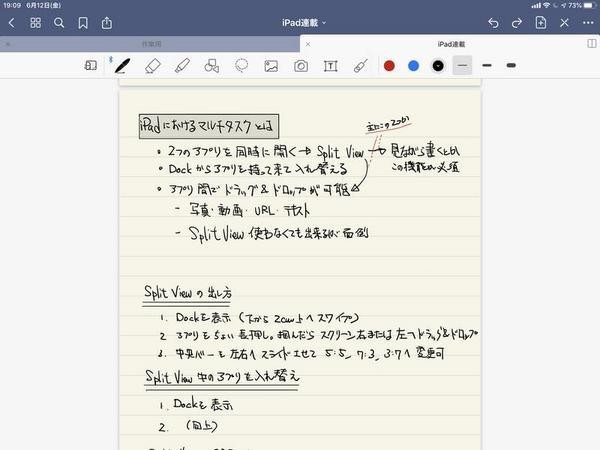 19:09 6月12日(金) 73%
iPad連載
作業用
iPad連載
iPadにおけるマルチタスクとは
主にこの2つが
• 2つのアプリを同時に開く → Split View → 見ながら書くとか
この機能が必須
• Dockからアプリを持って来て入れ替える
• アプリ間でドラッグ&ドロップが可能
- 写真・動画・URL・テキスト
- Split View 使わなくても出来るが面倒
Split View の出し方
1. Dockを表示 (下から2cm上へスワイプ)
2 アプリをちょい長押し。掴んだらスクリーン右または左へドラッグ&ドロップ
3. 中央バーを左右へスライドさせて 5:5, 7:3, 3:7へ変更可
Split View 中のアプリを入れ替え
1. Dockを表示
2. (同上)